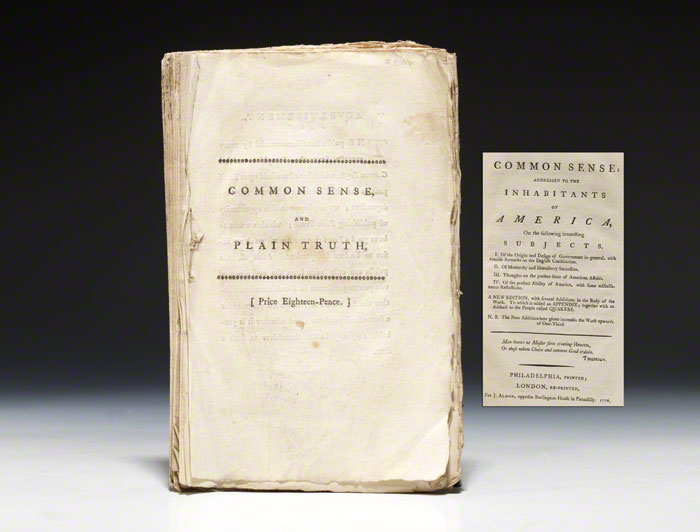 COMMON SENSE,
AND
PLAIN TRUTH,
[ Price Eighteen-Pence. ]
COMMON SENSE;
ADDRESSED TO THE
INHABITANTS
OF
AMERICA,
On the following interesting
SUBJECTS.
I. Of the Origin and Design of Government in general, with
concise Remarks on the English Constitution.
II. Of Monarchy and Hereditary Succession.
III. Thoughts on the present State of American Affairs.
IV. Of the present Ability of America, with some miscella-
neous Reflections.
A NEW EDITION, with several Additions in the Body of the
Work. To which is added an APPENDIX; together with an
Address to the People called QUAKERS.
N. B. The New Addition here given increases the Work upwards
of One-Third.
Man knows no Master save creating Heaven,
Or those whom Choice and common Good ordain.
THOMSON.
PHILADELPHIA, PRINTED;
LONDON, RE-PRINTED,
For J. ALMON, opposite Burlington-House in Piccadilly. 1776.